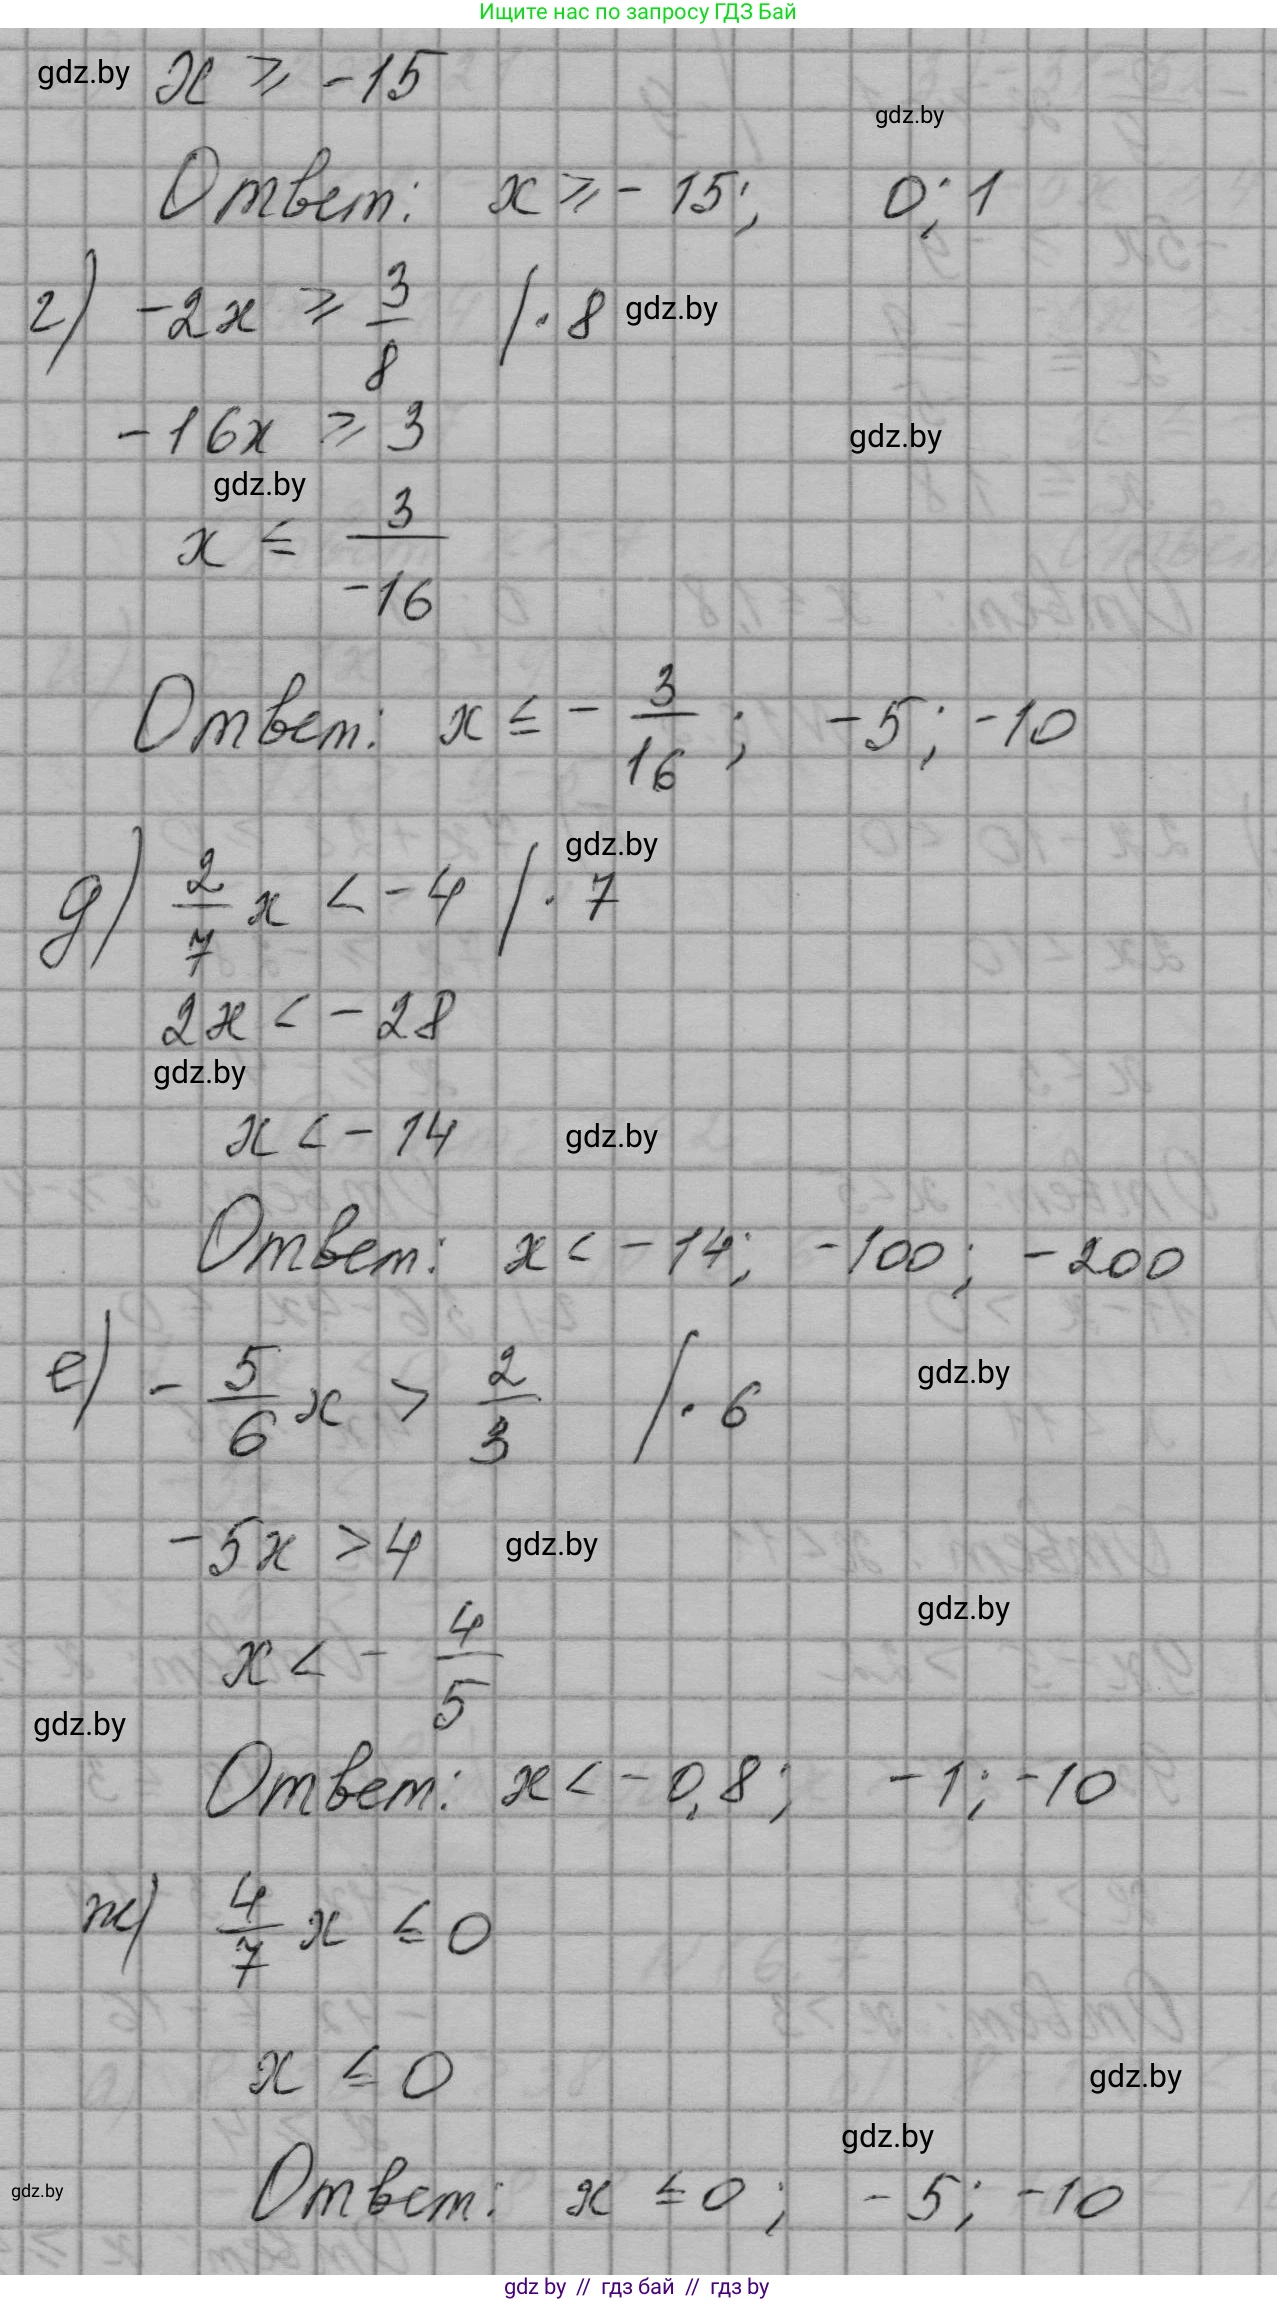 Ищите нас по запросу ГДЗ Бай
gdz.by x ≥ -15
gdz.by
Ответ: x ≥ - 15; 0; 1
г) -2x ≥ 3/8 | · 8 gdz.by
-16x ≥ 3
gdz.by
gdz.by
x ≤ 3/-16
Ответ: x ≤ - 3/16; -5; -10
gdz.by
д) 2/7 x < -4 | · 7
2x < -28
gdz.by
x < -14 gdz.by
Ответ: x < -14; -100; -200
е) - 5/6 x > 2/3 | · 6 gdz.by
-5x > 4 gdz.by
gdz.by
x < - 4/5
gdz.by
Ответ: x < -0,8; -1; -10
ж) 4/7 x ≤ 0
x ≤ 0 gdz.by
gdz.by
gdz.by Ответ: x ≤ 0; -5; -10
gdz.by // гдз бай // гдз.by